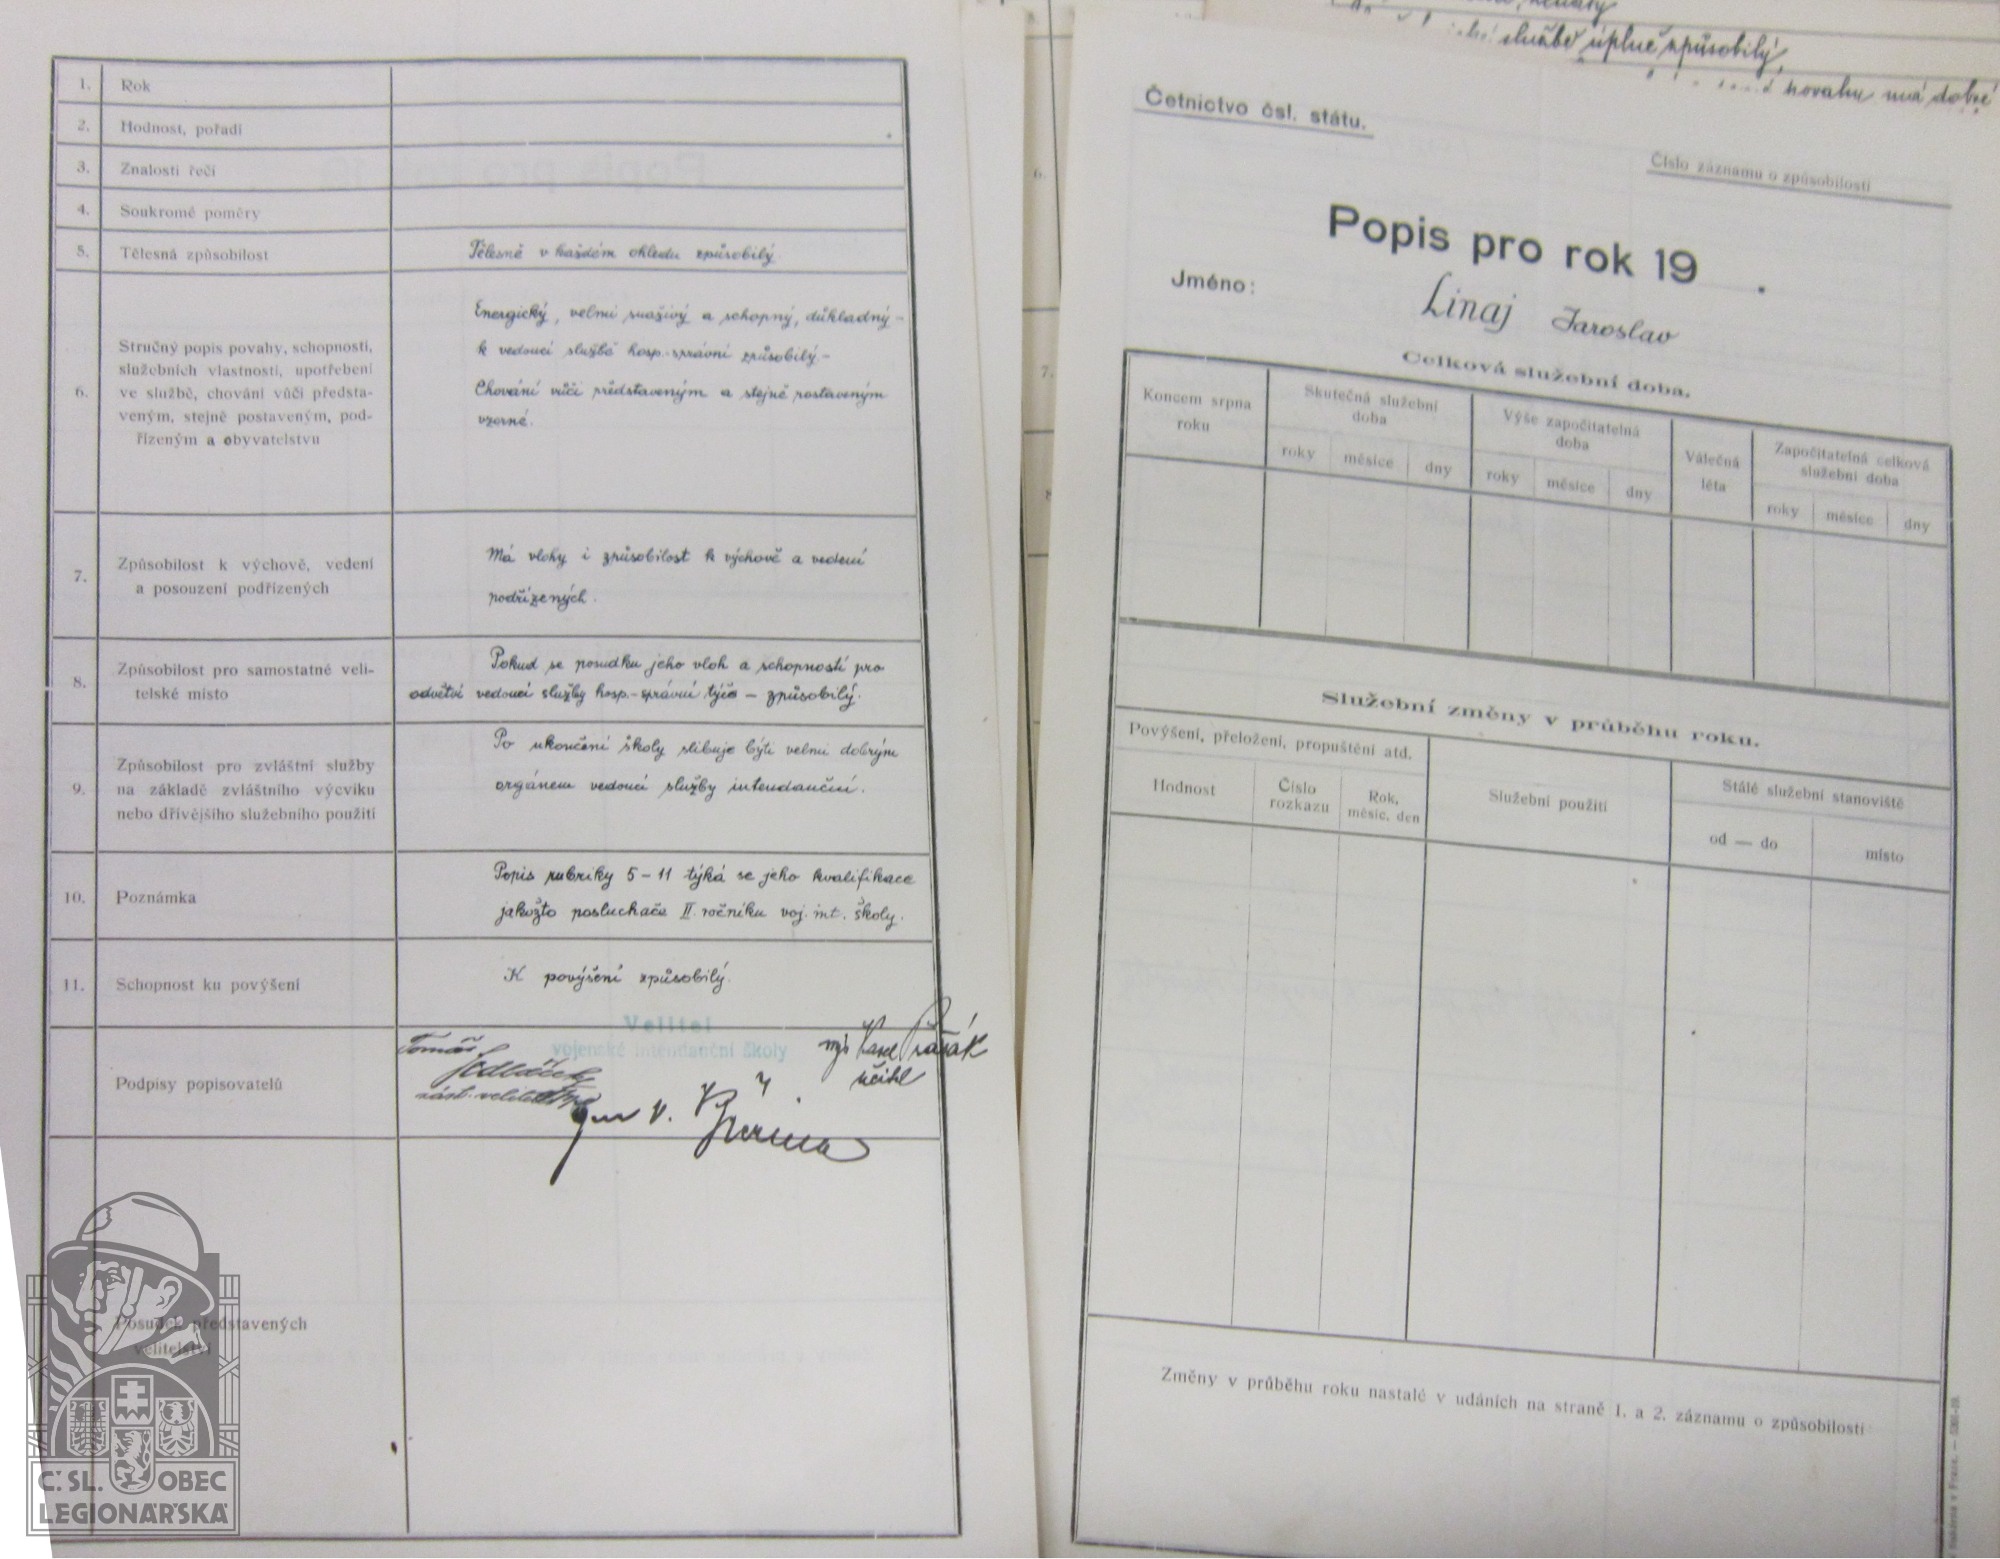 1. Rok
2. Hodnost, pořadí
3. Znalosti řečí
4. Soukromé poměry
5. Tělesná způsobilost
Tělesně v každém ohledu způsobilý
6. Stručný popis povahy, schopností,
služebních vlastností, upotřebení
ve službě, chování vůči představeným, stejně postaveným, podřízeným a obyvatelstvu
Energický, velmi snaživý a schopný, důkladný -
k vedoucí službě hosp.-správní způsobilý -
Chování vůči představeným a stejně postaveným
vzorné.
7. Způsobilost k výchově, vedení
a posouzení podřízených
Má vlohy i způsobilost k výchově a vedení
podřízených.
8. Způsobilost pro samostatné velitelské místo
Pokud se posudku jeho vloh a schopností pro
odvětví vedoucí služby hosp.-správní týče - způsobilý.
9. Způsobilost pro zvláštní služby
na základě zvláštního výcviku
nebo dřívějšího služebního použití
Po ukončení školy slibuje býti velmi dobrým
orgánem vedoucí služby intendanční.
10. Poznámka
Popis rubriky 5 - 11 týká se jeho kvalifikace
jakožto posluchače II. ročníku voj. int. školy.
11. Schopnost ku povýšení
K povýšení způsobilý.
Podpisy popisovatelů
Velitel
vojenské intendanční školy
Tomáš
Sedláček
zást. velitele
mjr Karel
učitel
Posudek představených
velitelství
Č.SL. OBEC
LEGIONÁŘSKÁ
službě úplně způsobilý,
povahu má dobré
6.
7.
Četnictvo čsl. státu.
Číslo záznamu o způsobilosti
Popis pro rok 19 .
Jméno: Linaj Jaroslav
Celková služební doba.
Koncem srpna
roku
Skutečná služební
doba
roky měsíce dny
Výše započitatelná
doba
roky měsíce dny
Válečná
léta
Započitatelná celková
služební doba
roky měsíce dny
Služební změny v průběhu roku.
Povýšení, přeložení, propuštění atd.
Hodnost
Číslo
rozkazu
Rok,
měsíc, den
Služební použití
Stálé služební stanoviště
od — do
místo
Změny v průběhu roku nastalé v udáních na straně 1. a 2. záznamu o způsobilosti